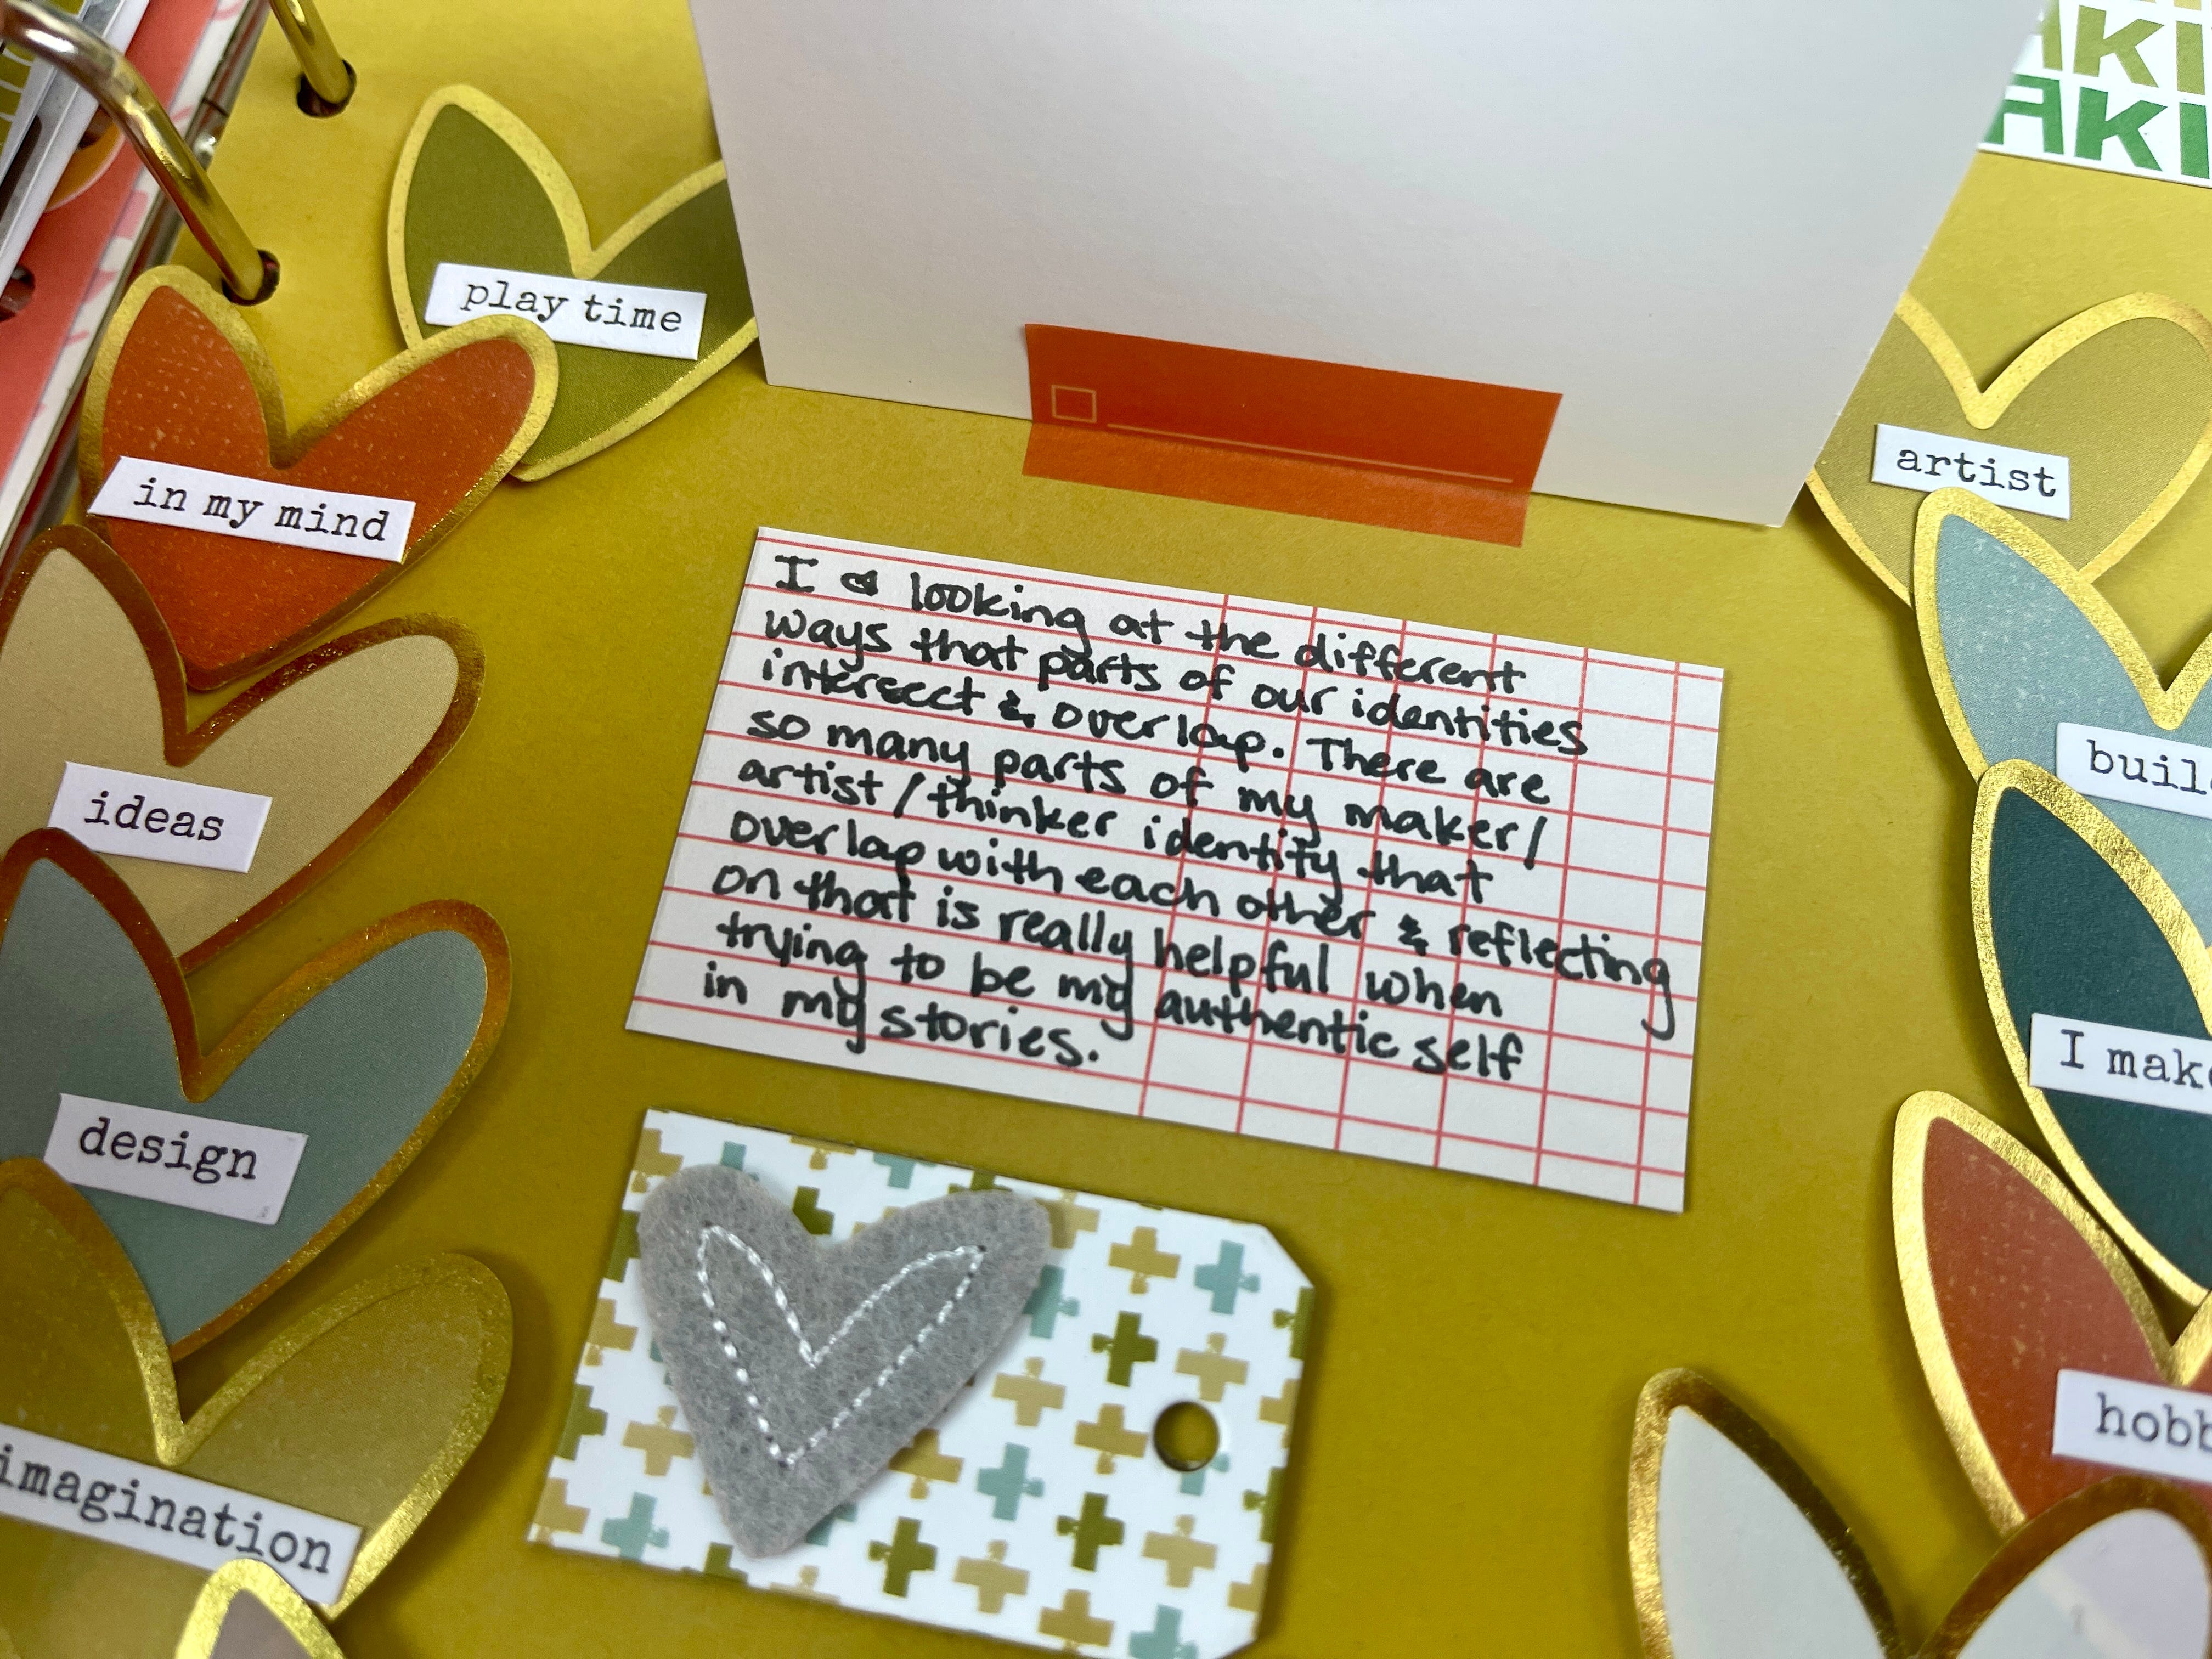 AKI
AKI
play time
in my mind
ideas
design
imagination
I ♥ looking at the different
ways that parts of our identities
intersect & overlap. There are
so many parts of my maker/
artist/thinker identity that
overlap with each other & reflecting
on that is really helpful when
trying to be my authentic self
in my stories.
artist
buil
I mak
hobb